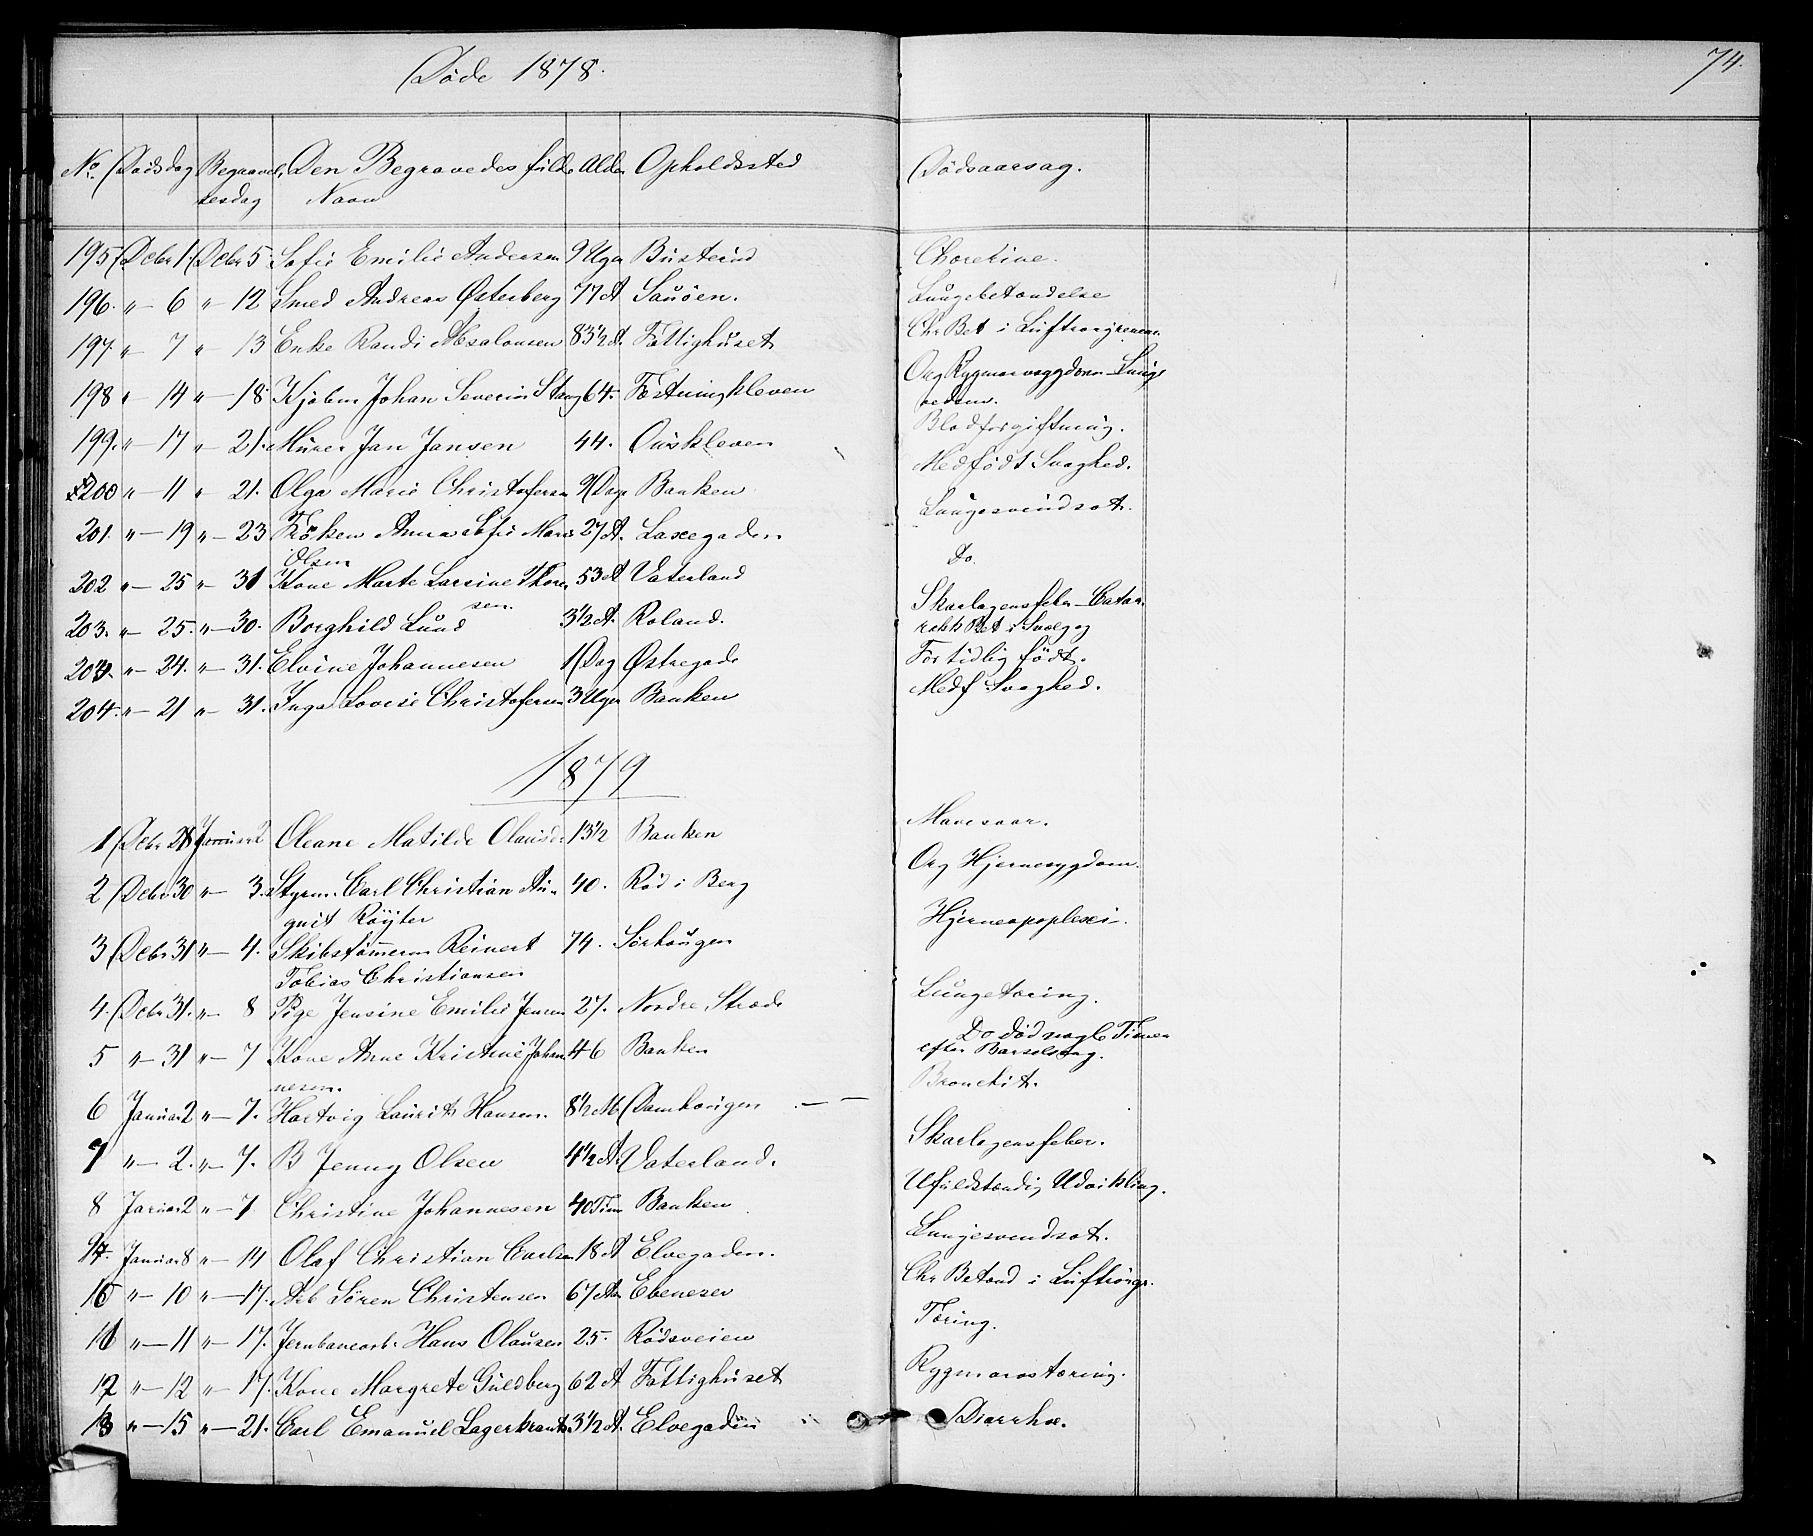 Døde 1878.
74.
No. Dødsdag Begravel- Den Begravedes fulde Alder Opholdssted Dødsaarsag.
sesdag Navn
195 Decbr 1. Decbr 5 Sofie Emilie Andersen 9 Uger Busterud Choretine.
196. " — 6 " — 12 Smed Andreas Østerberg 77 A Sauøen. Lungebetændelse
197. " — 7 " — 13 Enke Randi Absalonsen 83½ A. Fattighuset Chr Bet i Luftrørgrenene.
198 " — 14 " — 18. Kjøbm Johan Severin Stang 64. Fæstningkleven Org Rygmarvsygdom - Lunge
oedem.
199. " — 17 " — 21. Murer Jan Jansen 44. Ouskleven Blodforgiftning.
200 " — 11 " — 21. Olga Marie Christofersen 9 Dage Banken Medfødt Svaghed.
201. " — 19 " — 23 Frøken Anna Sofie Marie 27 A. Laxegaden Lungesvindsot.
Olsen
202 " — 25 " — 31 Kone Marte Larsine Thore 53 A Vaterland Do.
sen.
203. " — 25. " — 30. Borghild Lund 3½ A. Roland. Skarlagensfeber - Catar
rahlsk Bet i Svælg og
204. " — 24. " — 31. Elvine Johannesen 1 Dag Østregade For tidlig født.
204. " — 21 " — 31. Inga Lovise Christofersen 3 Uger Banken Medf Svaghed.
1879
1 Decbr 28 Januar 2 Oleane Matilde Olausd. 13½ Banken Mavesaar.
2 Decbr 30 " — 3. Styrm. Carl Christian Au- 40. Rød i Berg Org Hjernesygdom.
gust Røyter
3 Decbr 31 " — 4. Skibstømmerm Reinert 74. Sørhaugen Hjerneapoplexi.
Tobias Christiansen
4. Decbr 31. " — 8 Pige Jensine Emilie Jensen 27. Nordre Stræde Lungetæring.
5 " — 31 " — 7 Kone Anne Kristine Johan 46 Banken Do død nogle Timer
nesen. efter Barselseng.
6 Januar 2 " — 7. Hartvig Laurits Hansen. 8½ M. Damhaugen Bronchit.
7 " — 2. " — 7. B Jenny Olsen 4½ A. Vaterland. Skarlagensfeber.
8 Januar 2 " — 7 Christine Johannesen 40 Tim Banken Ufuldstændig Udvikling.
9. Januar 8 " — 14 Olaf Christian Carlsen 18 A Elvegaden. Lungesvendsot.
10 " — 10 " — 17. Arb Søren Christensen 67 Aar Ebeneser Chr Betænd i Luftrørgr.
11 " — 11 " — 17. Jernbanearb. Hans Olausen 25. Rødsveien Tæring.
12 " — 12 " — 17. Kone Margrete Guldberg 62 A Fattighuset Rygmarvstæring.
13 " — 15 " — 21. Carl Emanuel Lagerkrantz 3½ A. Elvegaden Diarrhæ.